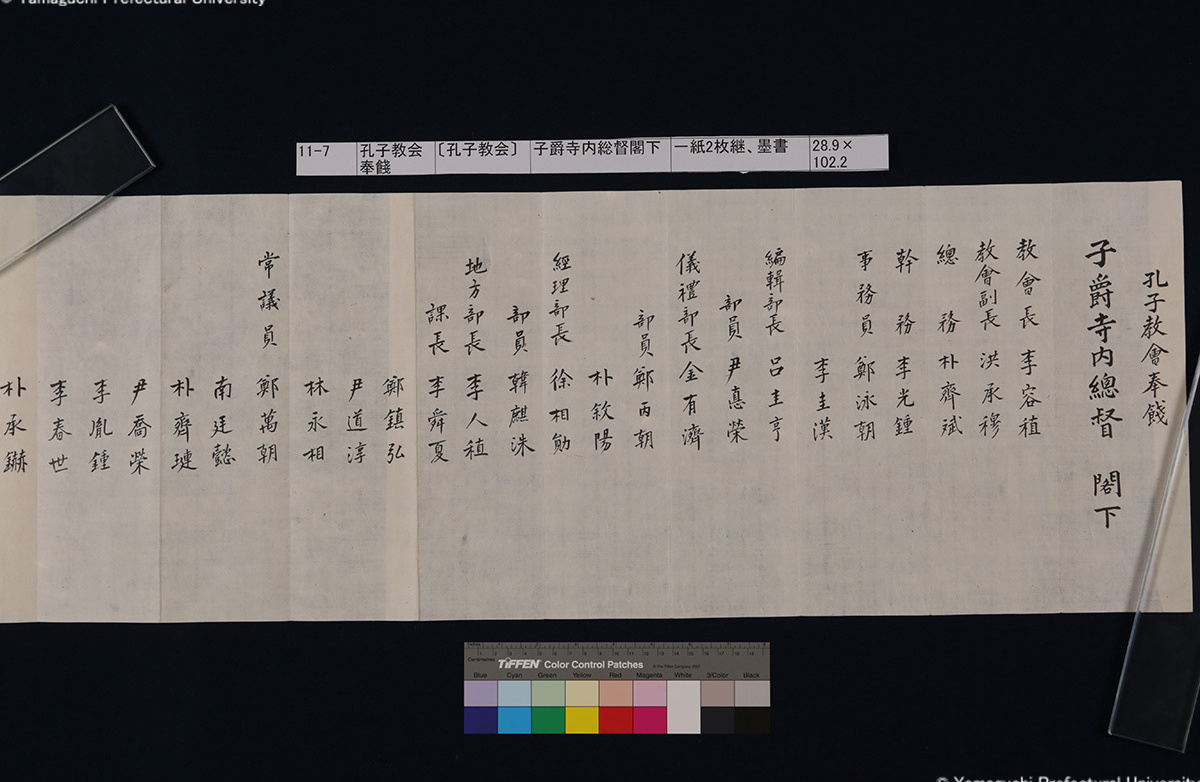 © Yamaguchi Prefectural University
11-7 孔子教会奉餞 〔孔子教会〕 子爵寺内総督閣下 一紙2枚継、墨書 28.9×102.2
孔子教會奉餞
子爵寺内總督 閣下
教會長 李容稙
教會副長 洪承穆
總務 朴齊斌
幹務 李光鍾
事務員 鄭泳朝
李圭漢
編輯部長 呂圭亨
部員 尹悳榮
儀禮部長 金有濟
部員 鄭丙朝
朴敘陽
經理部長 徐相勛
部員 韓麒洙
地方部長 李人稙
課長 李舜夏
鄭鎮弘
尹道淳
林永相
常議員 鄭萬朝
南廷懿
朴齊璉
尹喬榮
李胤鍾
李春世
朴承鏻
Centimetres
TIFFEN Color Control Patches
© The Tiffen Company, 2007
Blue Cyan Green Yellow Red Magenta White 3/Color Black
© Yamaguchi Prefectural University